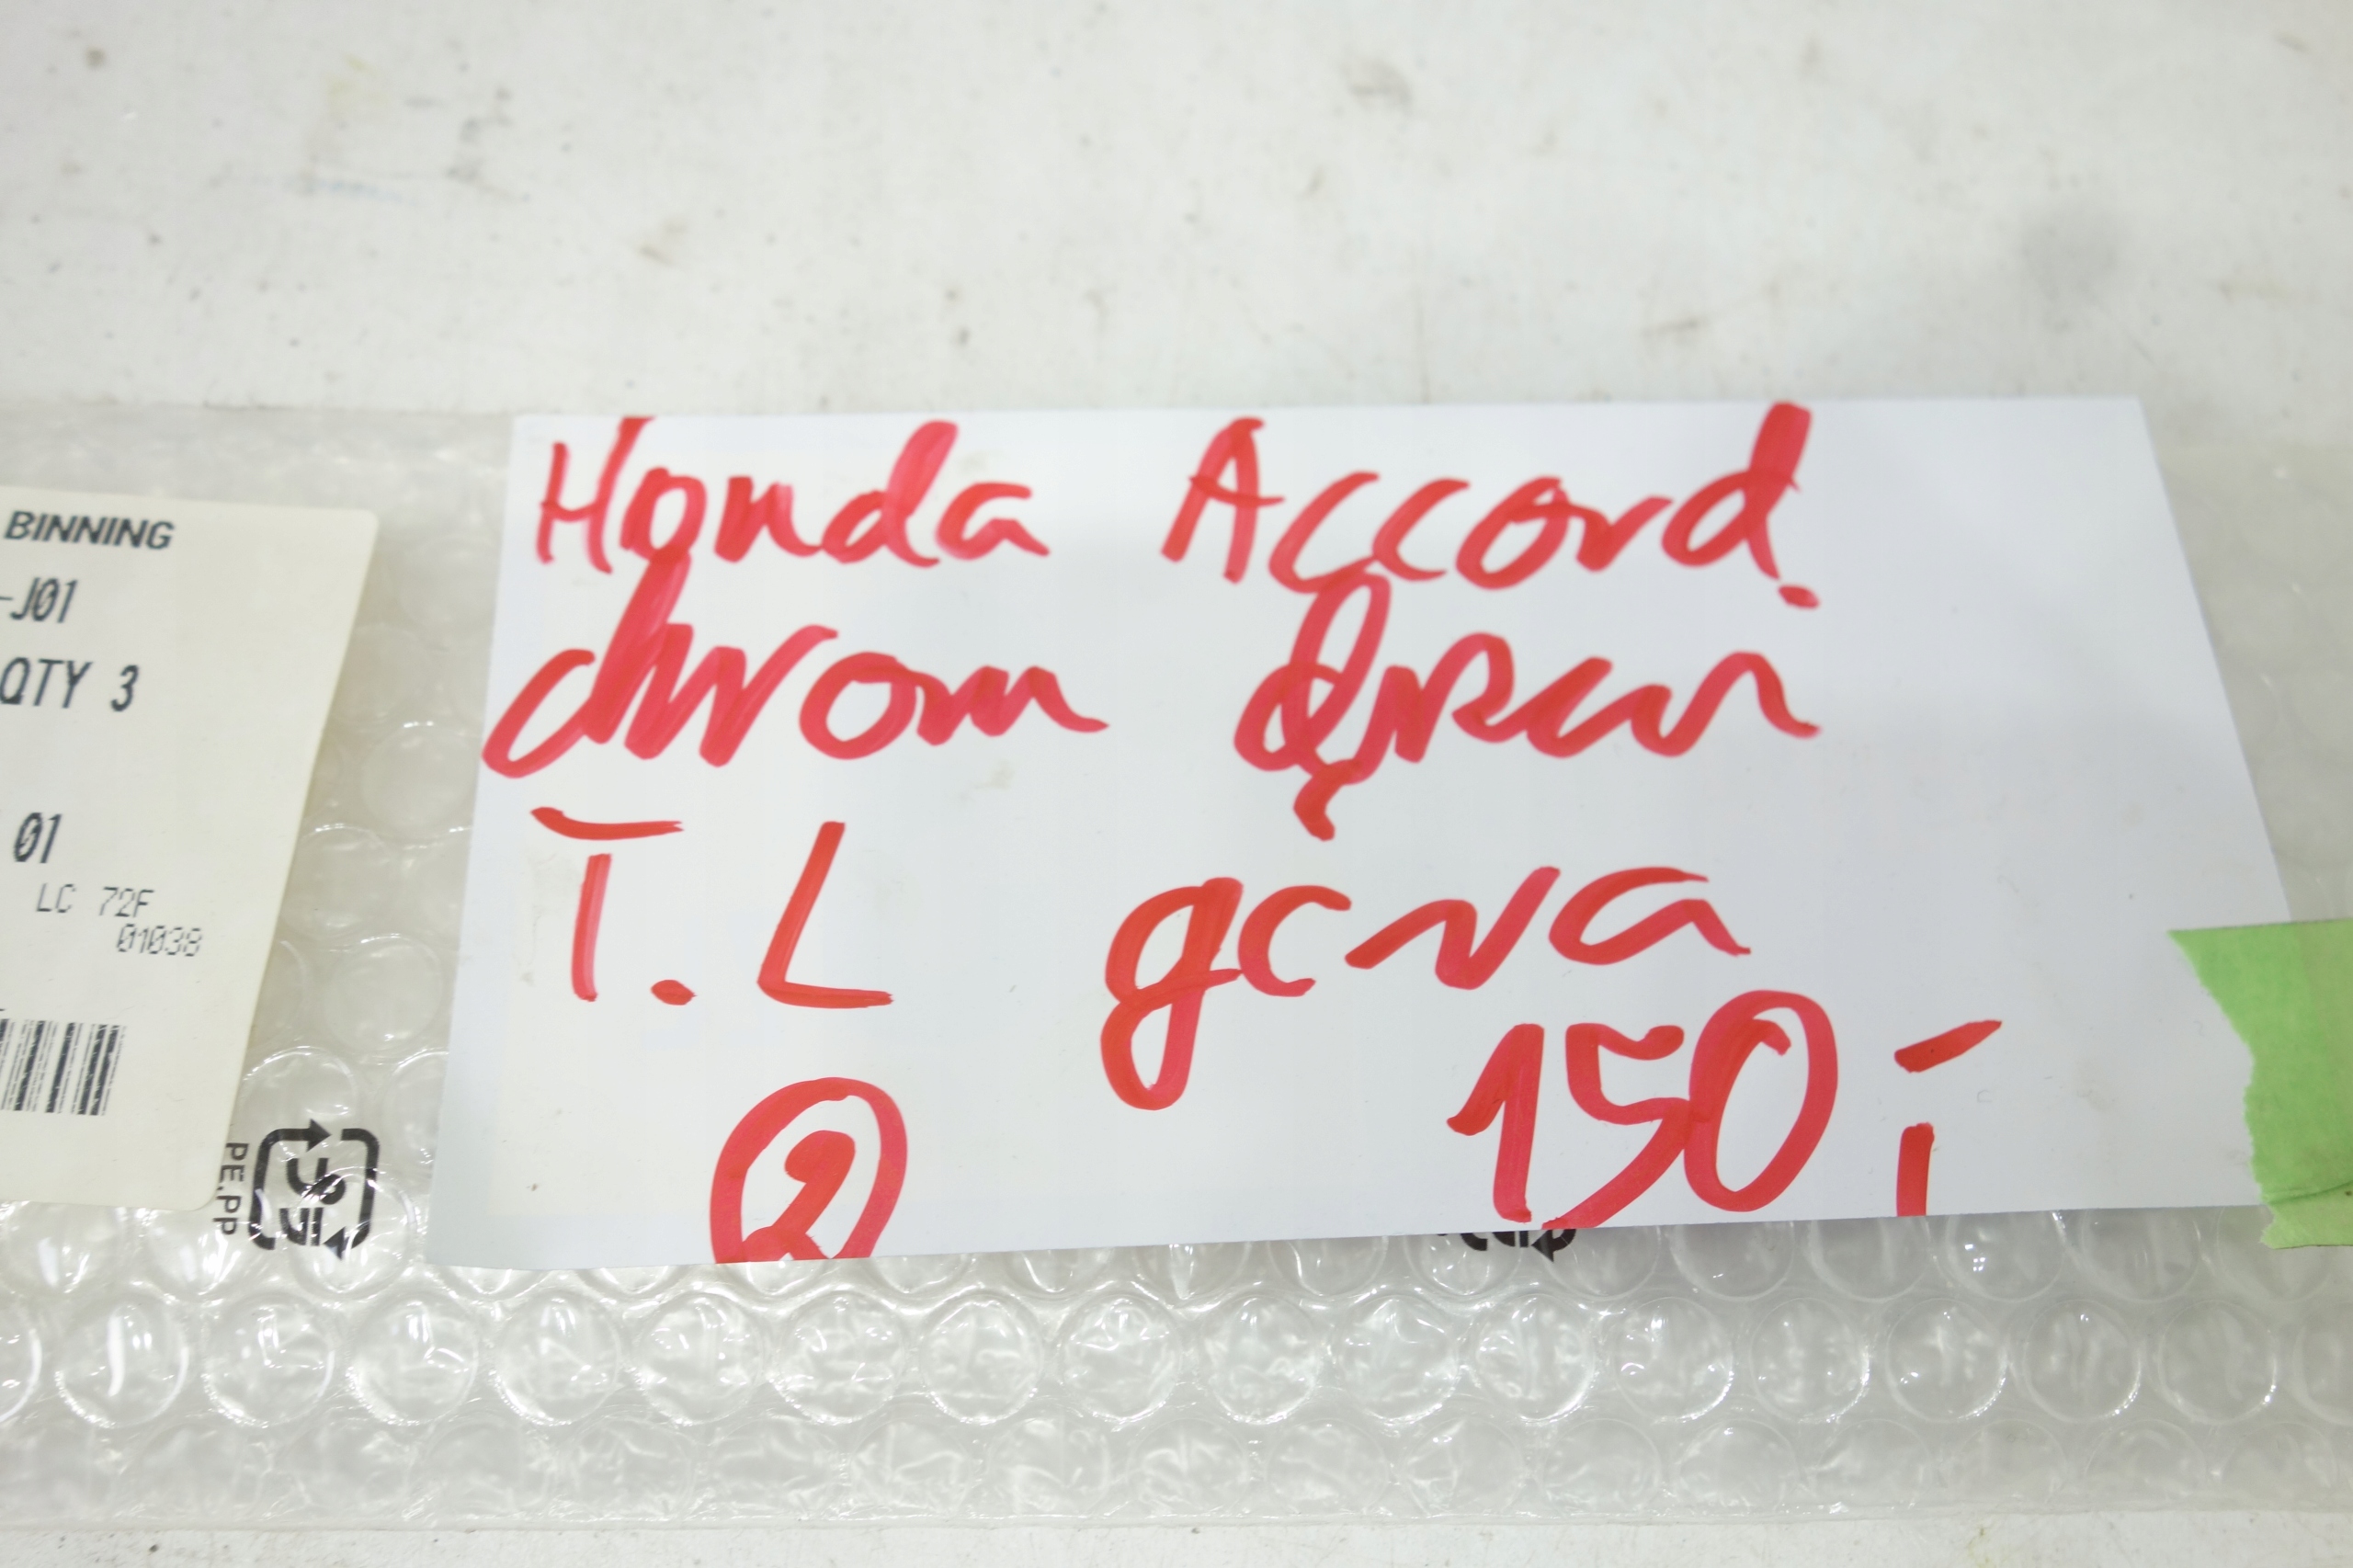 BINNING
-J01
QTY 3
01
LC 72F
01038
PE,PP
Honda Accord
chrom
T.L
150
2